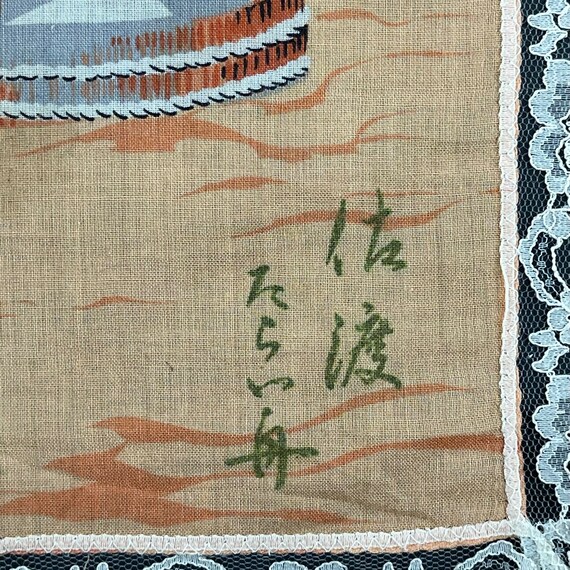 佐渡
たらい舟